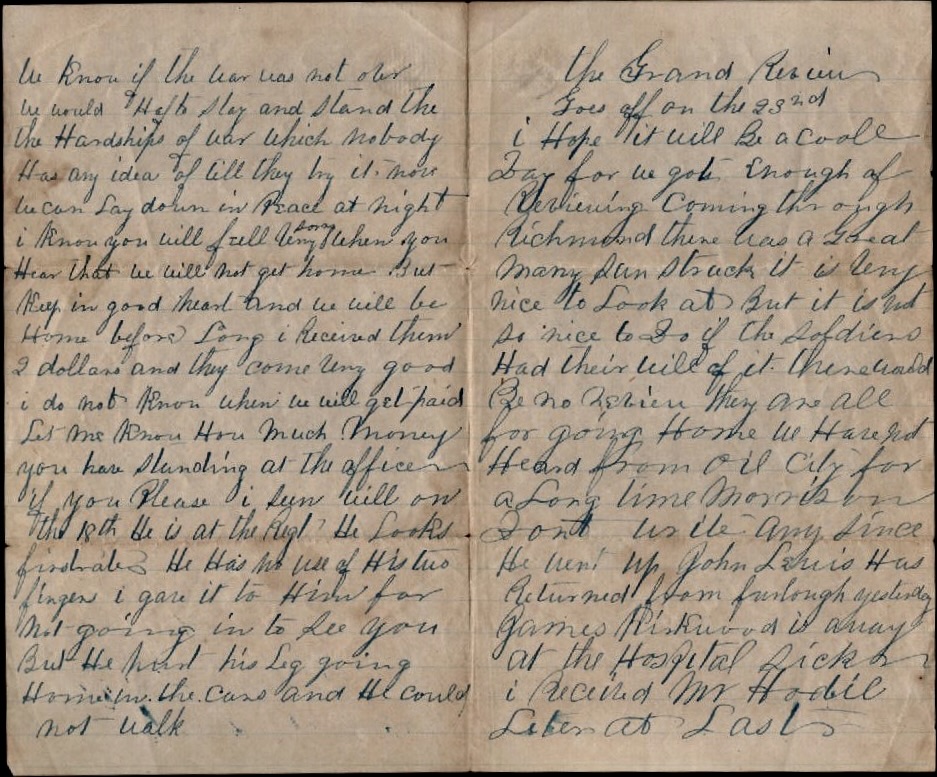 We Know if the war was not over
we would Hafto stay and stand the
the Hardships of war which nobody
Has any idea of till they try it now
we can Lay down in Peace at night
i Know you will feell very sorry When you
Hear that we will not get home But
Keep in good heart and we will be
Home before Long i Received them
2 dollars and they come very good
i do not Know when we will get paid
Let me Know How Much Money
you have standing at the office
if you Please i seen will on
the 18th He is at the Regt He Looks
firstrate He Has no use of His two
fingers i gave it to Him for
not going in to See you
But He hurt his Leg going
Home in the cars and He could
not walk
the Grand Review
Goes off on the 23rd
i Hope it will Be a Cool
Day for we got Enough of
Reviewing Coming through
Richmond there was a Great
many sun struck it is very
nice to Look at But it is not
so nice to Do if the soldiers
Had their will of it there would
Be no Review they are all
for going Home we Have not
Heard from Oil City for
a Long time Morrison
Dont write any since
He went up John Lewis Has
Returned from furlough yesterday
James Kirkwood is away
at the Hospital sick
i Received Mr Hodil
Leter at Last